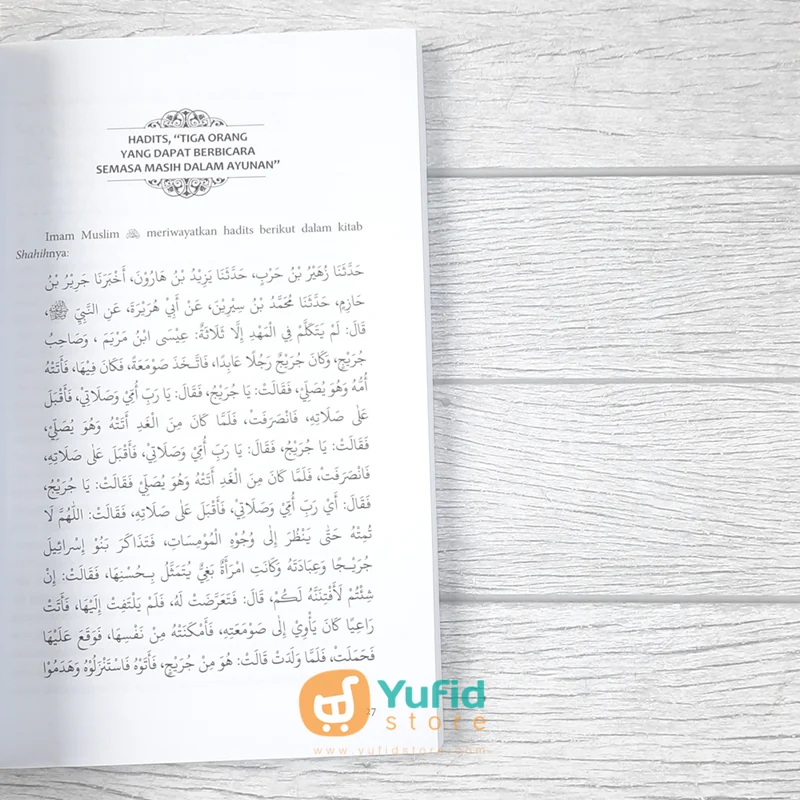 HADITS, “TIGA ORANG
YANG DAPAT BERBICARA
SEMASA MASIH DALAM AYUNAN”
Imam Muslim meriwayatkan hadits berikut dalam kitab
Shahihnya:
حَدَّثَنَا زُهَيْرُ بْنُ حَرْبٍ، حَدَّثَنَا يَزِيْدُ بْنُ هَارُوْنَ، أَخْبَرَنَا جَرِيْرُ بْنُ
حَازِمٍ، حَدَّثَنَا مُحَمَّدُ بْنُ سِيْرِيْنَ، عَنْ أَبِيْ هُرَيْرَةَ، عَنِ النَّبِيِّ ﷺ،
قَالَ: لَمْ يَتَكَلَّمْ فِي الْمَهْدِ إِلَّا ثَلَاثَةٌ: عِيْسَى ابْنُ مَرْيَمَ ، وَصَاحِبُ
جُرَيْجٍ، وَكَانَ جُرَيْجٌ رَجُلًا عَابِدًا، فَاتَّخَذَ صَوْمَعَةً، فَكَانَ فِيْهَا، فَأَتَتْهُ
أُمُّهُ وَهُوَ يُصَلِّيْ، فَقَالَتْ: يَا جُرَيْجُ، فَقَالَ: يَا رَبِّ أُمِّيْ وَصَلَاتِيْ، فَأَقْبَلَ
عَلَى صَلَاتِهِ، فَانْصَرَفَتْ، فَلَمَّا كَانَ مِنَ الْغَدِ أَتَتْهُ وَهُوَ يُصَلِّيْ،
فَقَالَتْ: يَا جُرَيْجُ، فَقَالَ: يَا رَبِّ أُمِّيْ وَصَلَاتِيْ، فَأَقْبَلَ عَلَى صَلَاتِهِ،
فَانْصَرَفَتْ، فَلَمَّا كَانَ مِنَ الْغَدِ أَتَتْهُ وَهُوَ يُصَلِّيْ فَقَالَتْ: يَا جُرَيْجُ،
فَقَالَ: أَيْ رَبِّ أُمِّيْ وَصَلَاتِيْ، فَأَقْبَلَ عَلَى صَلَاتِهِ، فَقَالَتْ: اللّٰهُمَّ لَا
تُمِتْهُ حَتَّى يَنْظُرَ إِلَى وُجُوْهِ الْمُوْمِسَاتِ، فَتَذَاكَرَ بَنُوْ إِسْرَائِيْلَ
جُرَيْجًا وَعِبَادَتَهُ وَكَانَتِ امْرَأَةٌ بَغِيٌّ يُتَمَثَّلُ بِحُسْنِهَا، فَقَالَتْ: إِنْ
شِئْتُمْ لَأَفْتِنَنَّهُ لَكُمْ، قَالَ: فَتَعَرَّضَتْ لَهُ، فَلَمْ يَلْتَفِتْ إِلَيْهَا، فَأَتَتْ
رَاعِيًا كَانَ يَأْوِيْ إِلَى صَوْمَعَتِهِ، فَأَمْكَنَتْهُ مِنْ نَفْسِهَا، فَوَقَعَ عَلَيْهَا
فَحَمَلَتْ، فَلَمَّا وَلَدَتْ قَالَتْ: هُوَ مِنْ جُرَيْجٍ، فَأَتَوْهُ فَاسْتَنْزَلُوْهُ وَهَدَمُوْا
Yufid
store
www.yufidstore.com